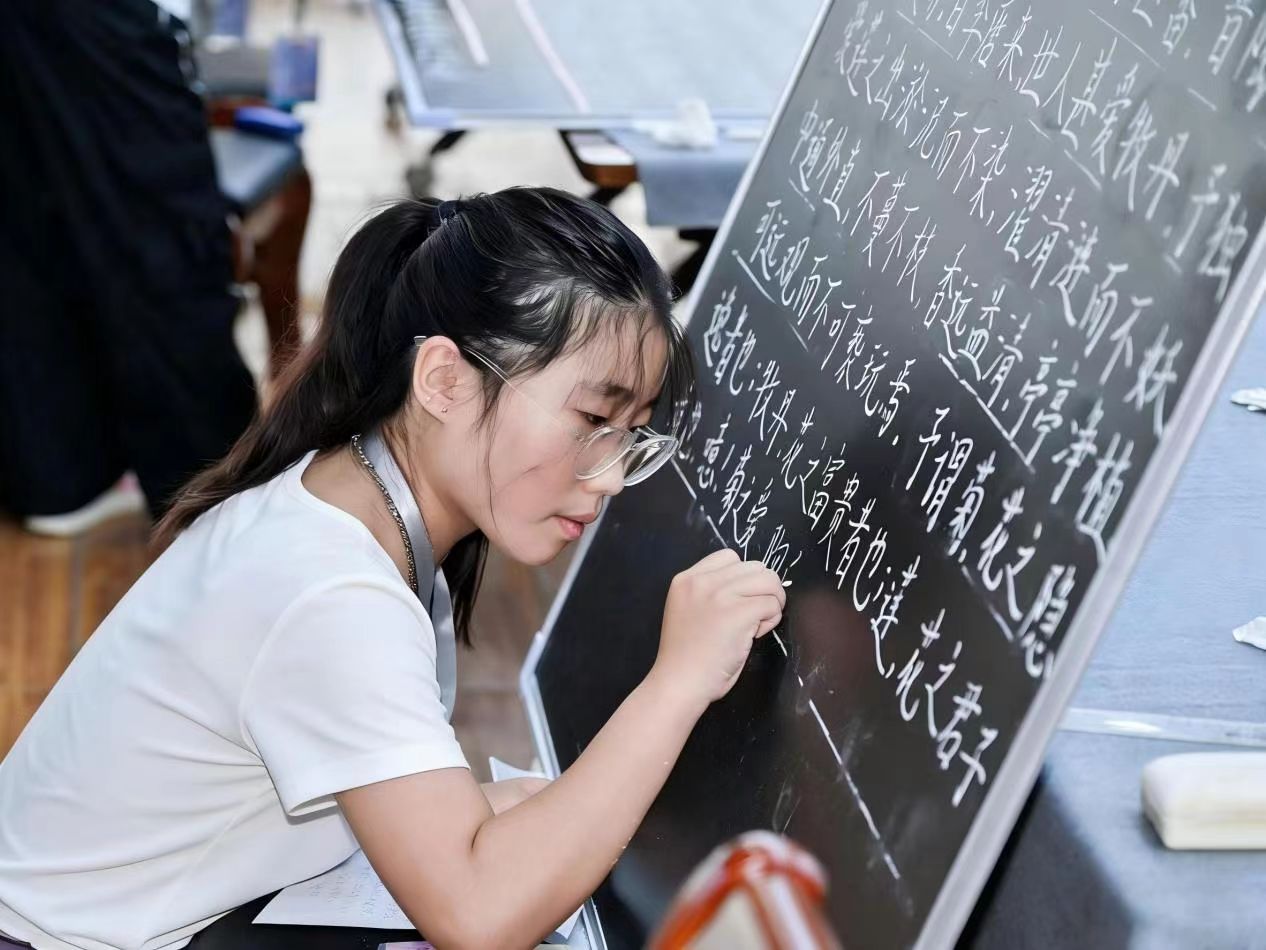 蕃,晋
自李唐来,世人甚爱牡丹,予独
爱莲之出淤泥而不染,濯清涟而不妖
中通外直,不蔓不枝,香远益清,亭亭净植
可远观而不可亵玩焉,予谓菊,花之隐
逸者也;牡丹,花之富贵者也;莲,花之君子
噫!菊之爱,陶